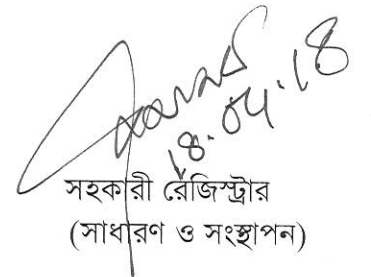 18.04.18
সহকারী রেজিস্ট্রার
(সাধারণ ও সংস্থাপন)